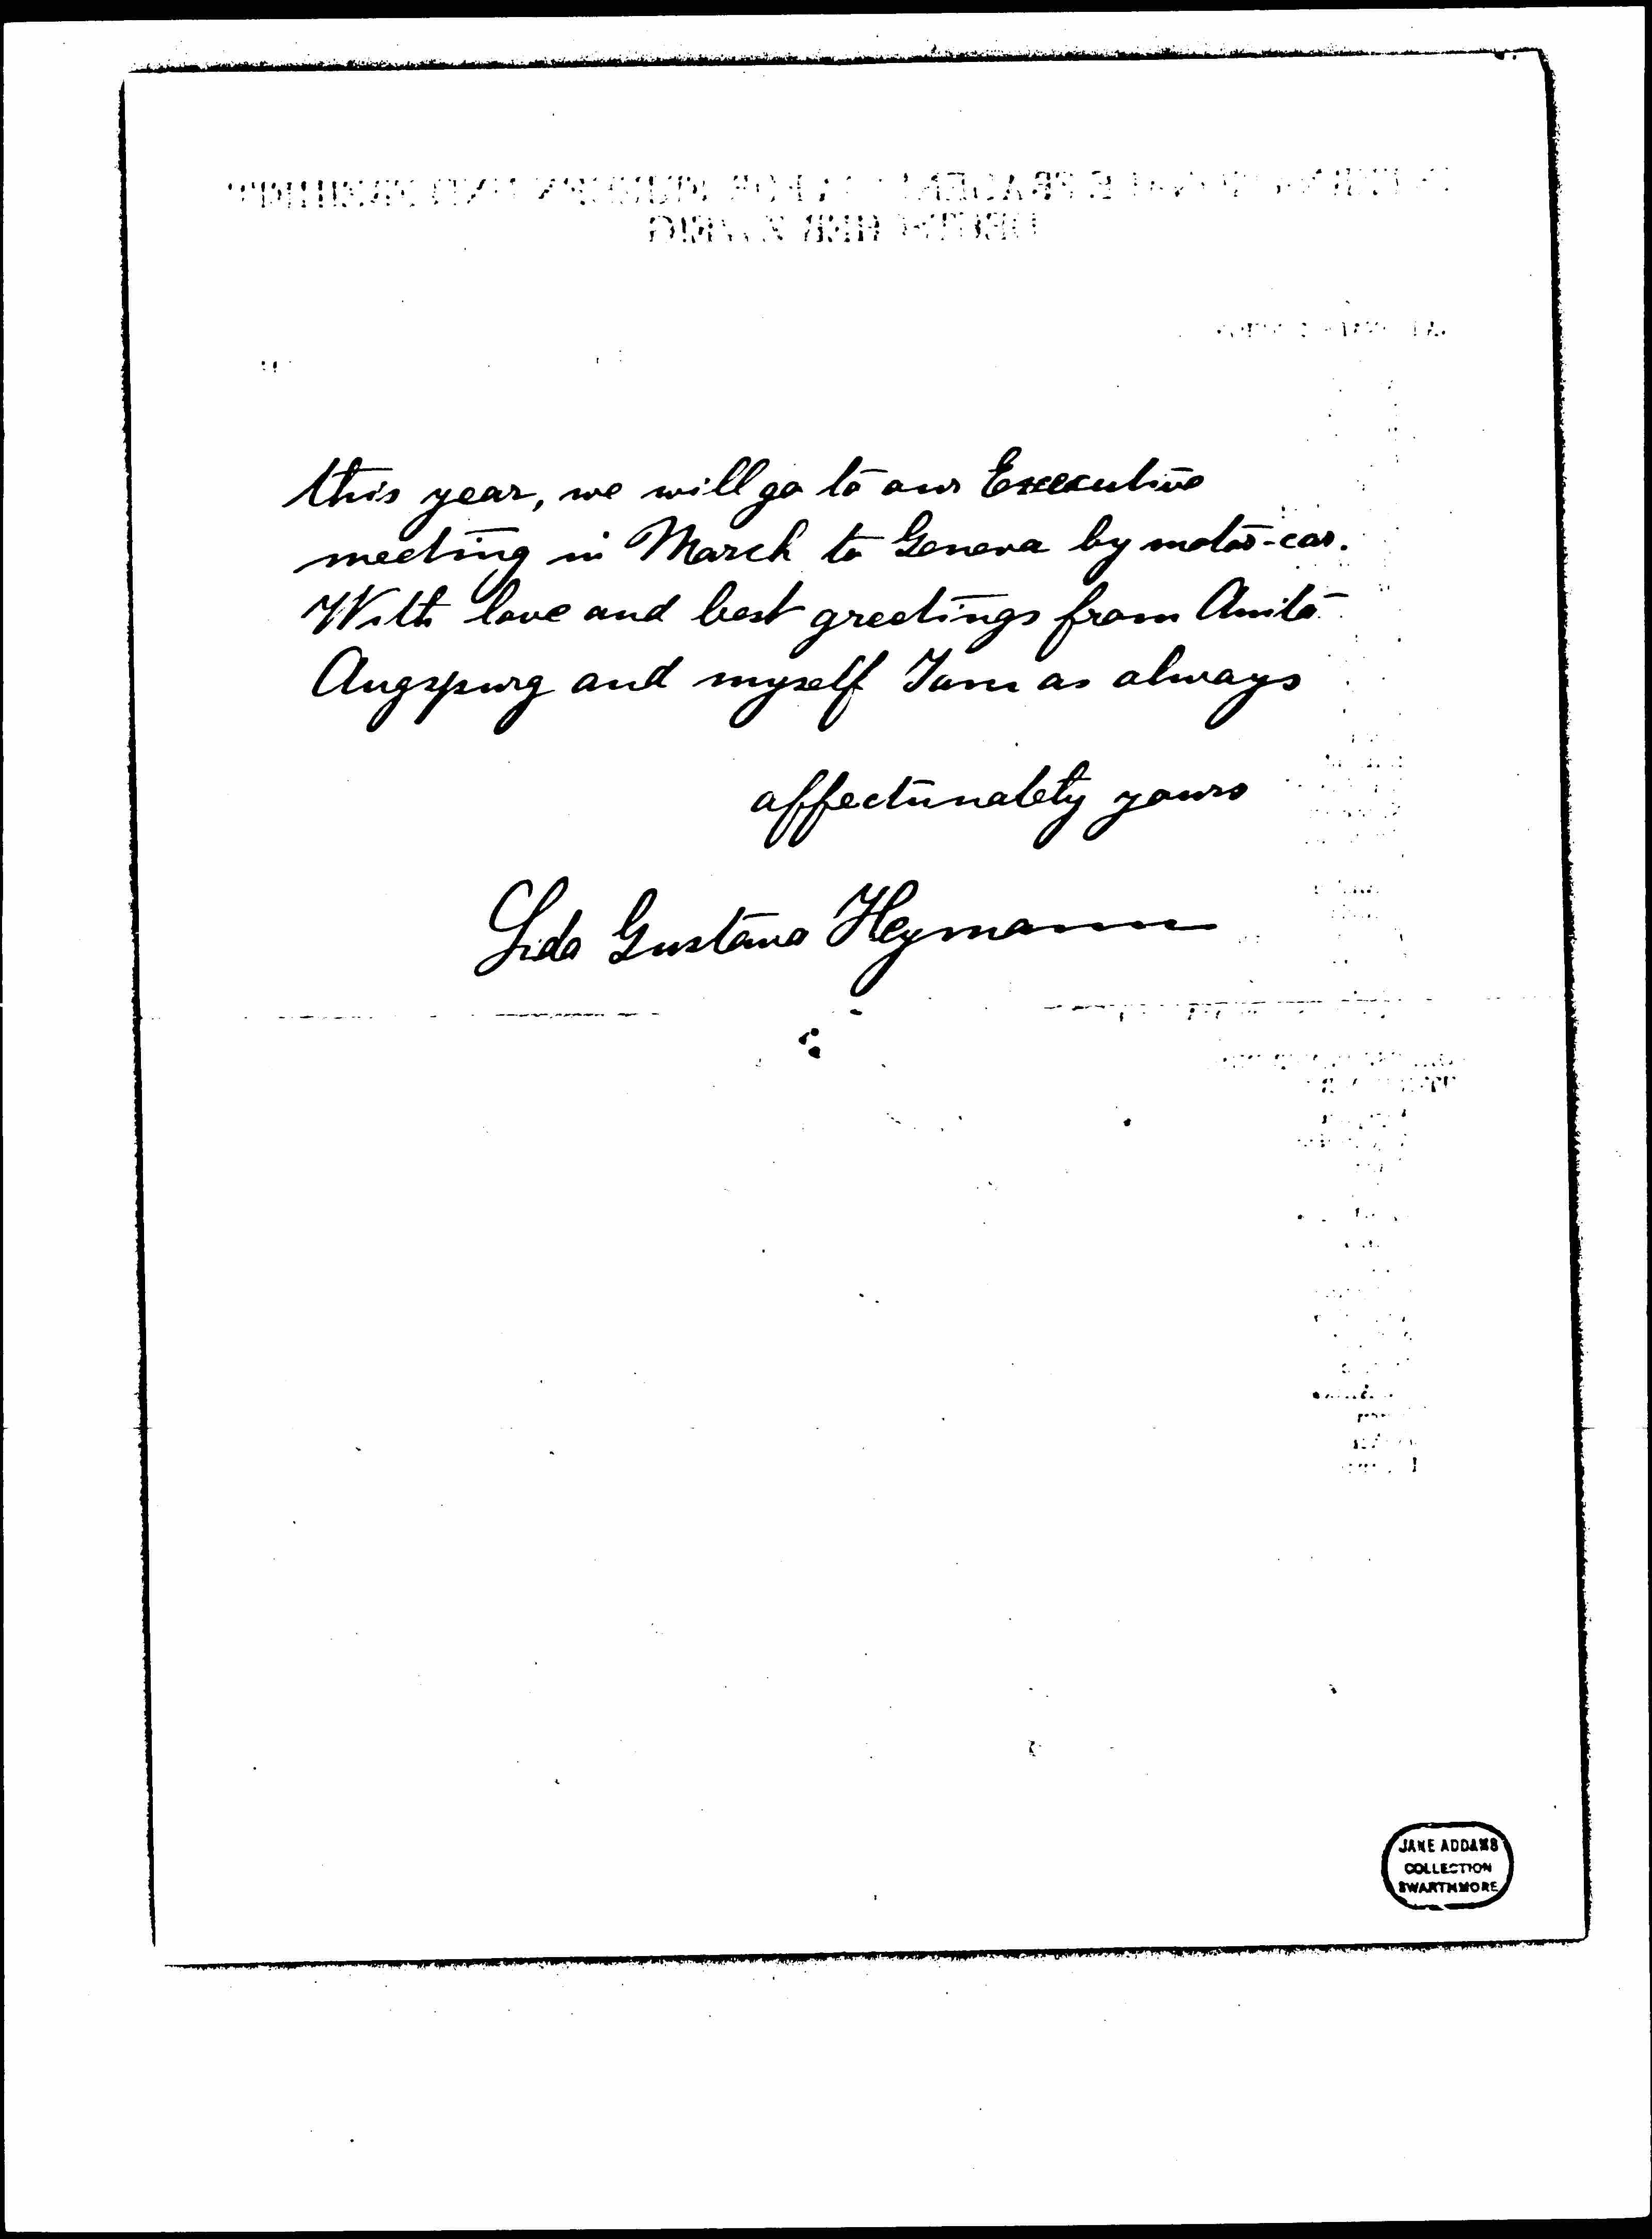 this year, we will go to our Exeecutive
meeting in March to Geneva by motor-car.
With love and best greetings from Anita
Augspurg and myself I am as always
affectunately yours
Lida Gustava Heymann
JANE ADDAMS
COLLECTION
SWARTHMORE